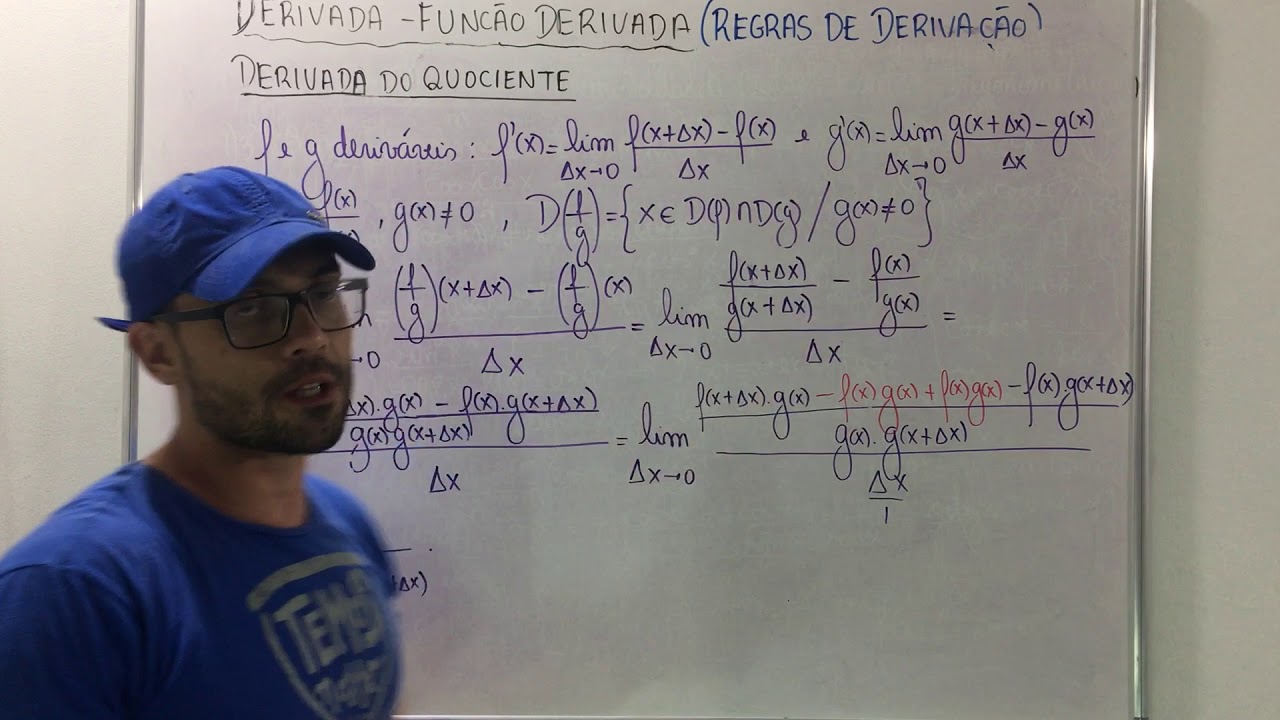 DERIVADA - FUNCÃO DERIVADA (REGRAS DE DERIVAÇÃO)
DERIVADA DO QUOCIENTE
f e g deriváveis: f'(x) = lim Δx→0 (f(x+Δx) - f(x))/Δx e g'(x) = lim Δx→0 (g(x+Δx) - g(x))/Δx
f(x), g(x) ≠ 0, D(f/g) = {x ∈ D(f) ∩ D(g) / g(x) ≠ 0}
→0 ((f/g)(x+Δx) - (f/g)(x))/Δx = lim Δx→0 (f(x+Δx)/g(x+Δx) - f(x)/g(x))/Δx =
Δx).g(x) - f(x).g(x+Δx)/(g(x) g(x+Δx))/Δx = lim Δx→0 ((f(x+Δx).g(x) - f(x) g(x) + f(x) g(x) - f(x).g(x+Δx))/(g(x).g(x+Δx)))/(Δx/1)
Δx)